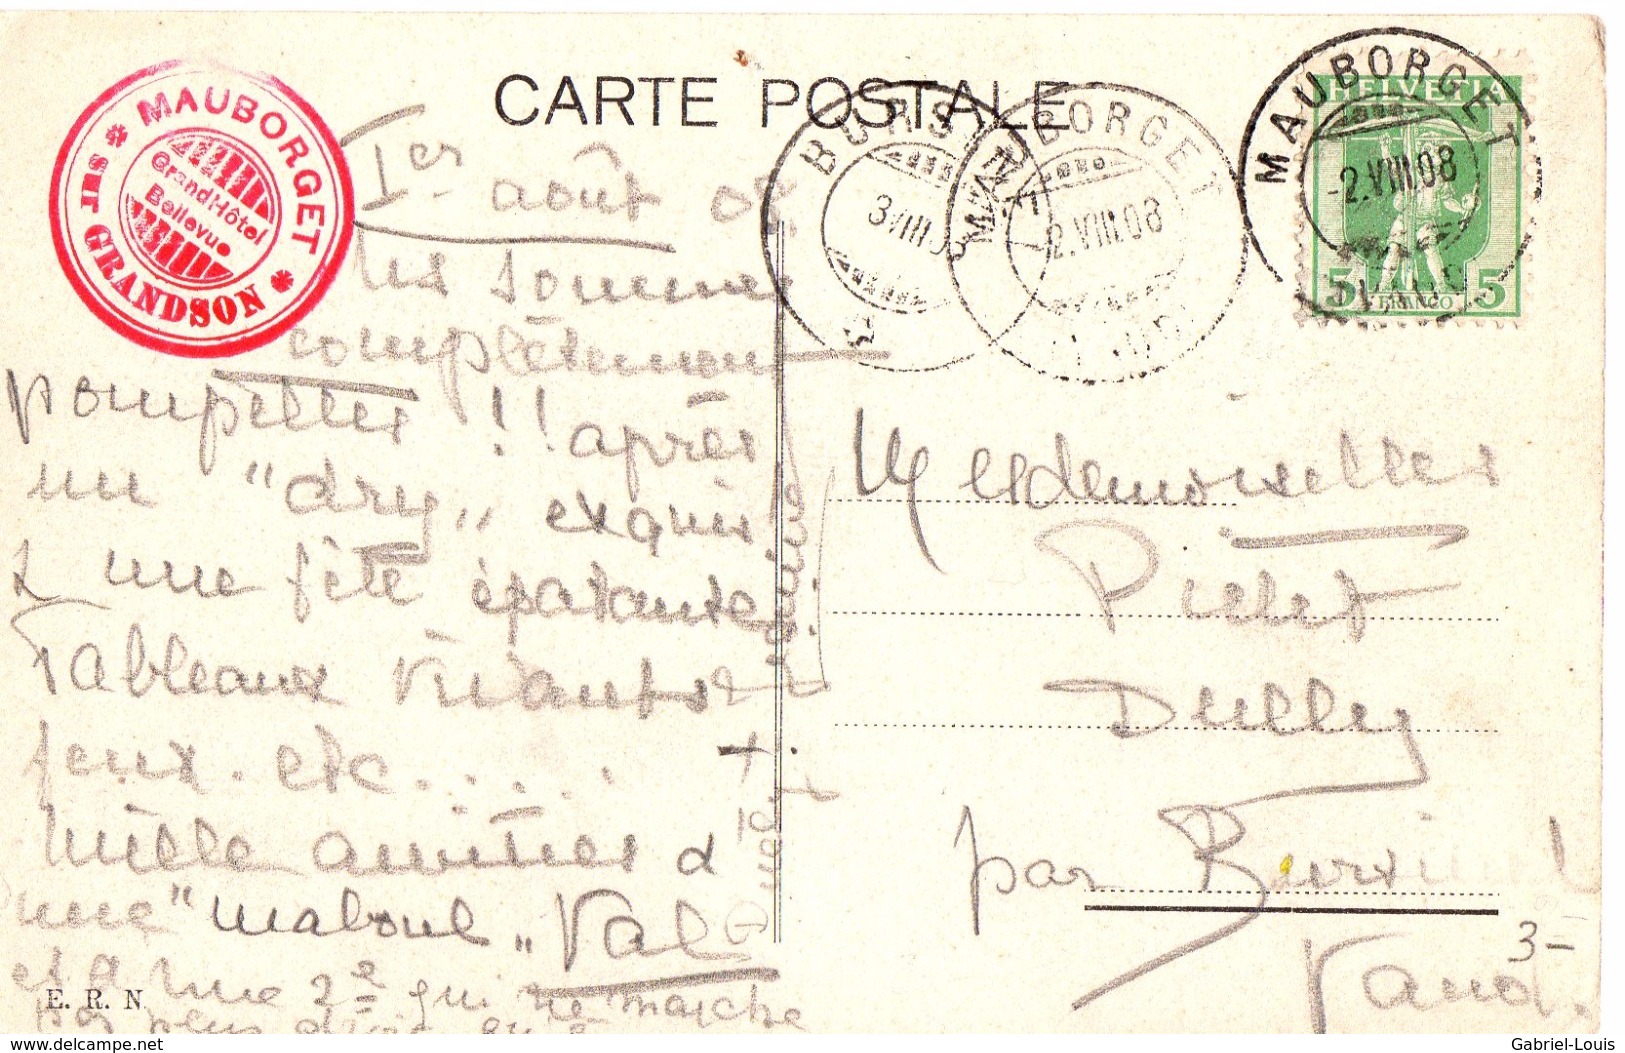 CARTE POSTALE
MAUBORGET
sur GRANDSON
Grand Hôtel
Bellevue
BURSINEL
3 VIII 08
MAUBORGET
2.VIII.08
MAUBORGET
-2.VIII.08
HELVETIA
5 FRANCO 5
1er août 08
complètement
pompettes !! après
un "dry" exquis
& une fête épatante!
Tableaux vivants
jeux. etc....
Mille amitiés d'
une "maboul" Val
et d'une 2e qui ne marche
pas plus droit
Mesdemoiselles
Pictet
Dully
par Bursinel
Vaud.
3-
E. R. N.
delcampe.net
Gabriel-Louis